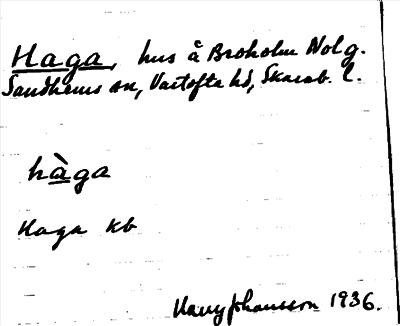 Haga, hus å Broholm Nolg.
Sandhems sn, Vartofta hd, Skarab. l.
hàga
Haga kb
Harry Johansson 1936.